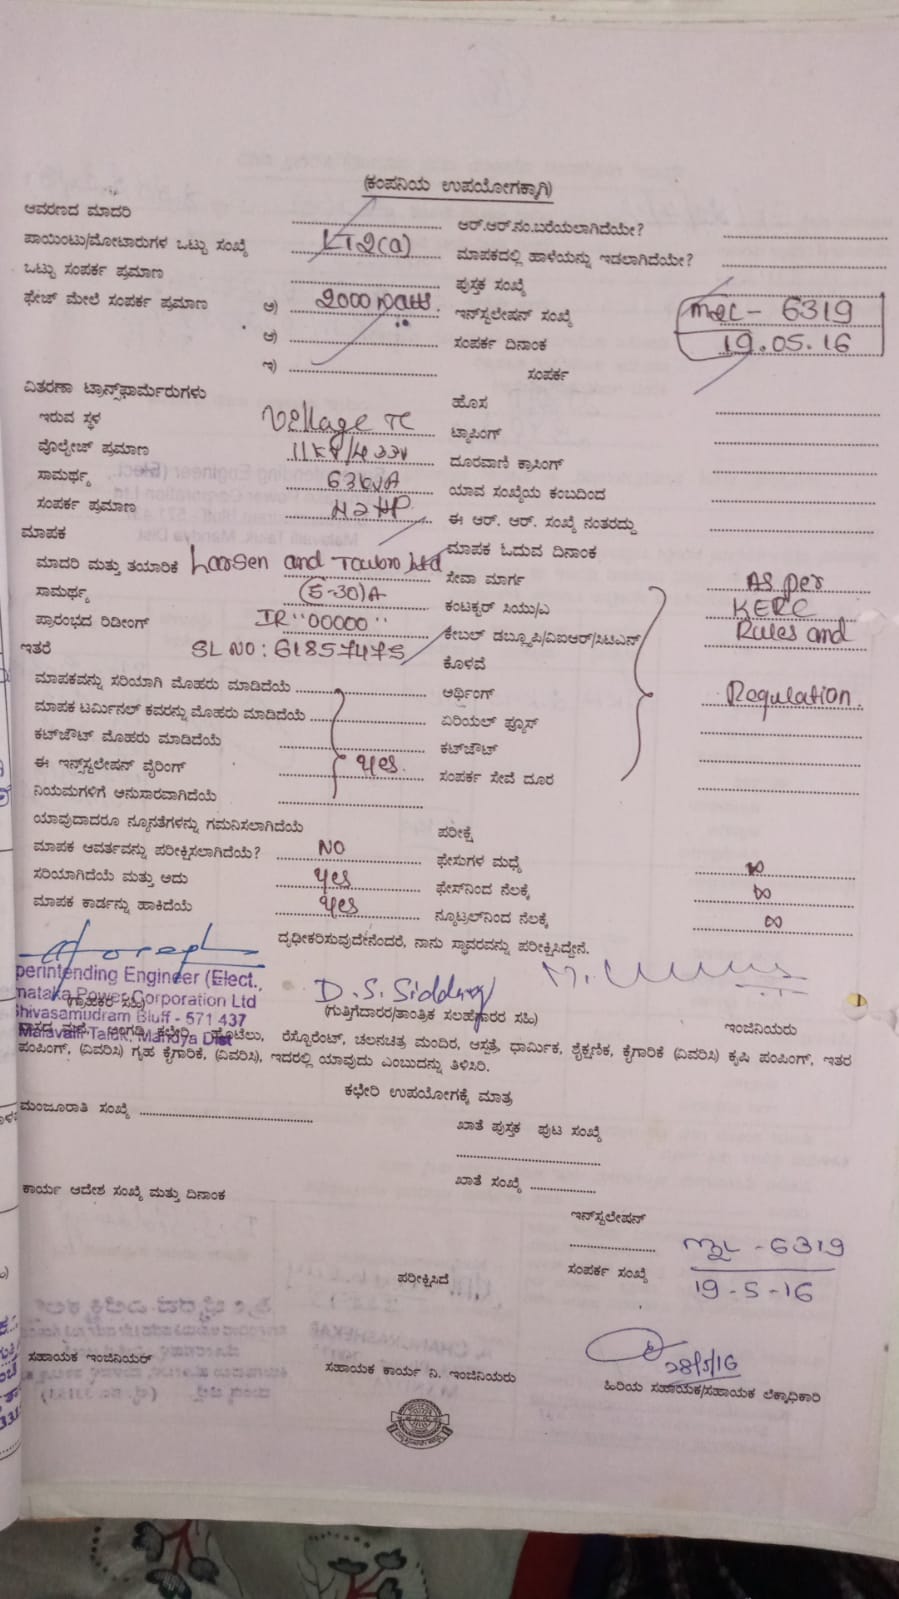 (ಕಂಪನಿಯ ಉಪಯೋಗಕ್ಕಾಗಿ)
ಆವರಣದ ಮಾದರಿ ಆರ್.ಆರ್.ನಂ.ಬರೆಯಲಾಗಿದೆಯೇ?
ಪಾಯಿಂಟು/ಮೋಟಾರುಗಳ ಒಟ್ಟು ಸಂಖ್ಯೆ LT2(a) ಮಾಪಕದಲ್ಲಿ ಹಾಳೆಯನ್ನು ಇಡಲಾಗಿದೆಯೇ?
ಒಟ್ಟು ಸಂಪರ್ಕ ಪ್ರಮಾಣ ಪುಸ್ತಕ ಸಂಖ್ಯೆ
ಫೇಜ್ ಮೇಲೆ ಸಂಪರ್ಕ ಪ್ರಮಾಣ ಅ) 2000 watts. ಇನ್‌ಸ್ಟಲೇಷನ್ ಸಂಖ್ಯೆ - 6319
ಆ) ಸಂಪರ್ಕ ದಿನಾಂಕ 19.05.16
ಇ) ಸಂಪರ್ಕ
ವಿತರಣಾ ಟ್ರಾನ್ಸ್‌ಫಾರ್ಮೆರುಗಳು ಹೊಸ
ಇರುವ ಸ್ಥಳ Village TC ಟ್ಯಾಪಿಂಗ್
ವೊಲ್ಟೇಜ್ ಪ್ರಮಾಣ 11KV/433V ದೂರವಾಣಿ ಕ್ರಾಸಿಂಗ್
ಸಾಮರ್ಥ್ಯ 63KVA ಯಾವ ಸಂಖ್ಯೆಯ ಕಂಬದಿಂದ
ಸಂಪರ್ಕ ಪ್ರಮಾಣ HP ಈ ಆರ್. ಆರ್. ಸಂಖ್ಯೆ ನಂತರದ್ದು
ಮಾಪಕ ಮಾಪಕ ಓದುವ ದಿನಾಂಕ
ಮಾದರಿ ಮತ್ತು ತಯಾರಿಕೆ Larsen and Toubro Ltd ಸೇವಾ ಮಾರ್ಗ As per
ಸಾಮರ್ಥ್ಯ (5-30)A ಕಂಟಕ್ಟರ್ ಸಿಯು/ಎ KERC
ಪ್ರಾರಂಭದ ರಿಡೀಂಗ್ IR "00000" ಕೇಬಲ್ ಡಬ್ಲ್ಯೂಪಿ/ವಿಐಆರ್/ಸಿಟಿಎಸ್ Rules and
ಇತರೆ SL NO: 61857475 ಕೊಳವೆ
ಮಾಪಕವನ್ನು ಸರಿಯಾಗಿ ಮೊಹರು ಮಾಡಿದೆಯೆ ಆರ್ಥಿಂಗ್ Regulation.
ಮಾಪಕ ಟರ್ಮಿನಲ್ ಕವರನ್ನು ಮೊಹರು ಮಾಡಿದೆಯೆ ಏರಿಯಲ್ ಫ್ಯೂಸ್
ಕಟ್‌ಔಟ್ ಮೊಹರು ಮಾಡಿದೆಯೆ ಕಟ್‌ಔಟ್
ಈ ಇನ್ಸ್‌ಸ್ಟಲೇಷನ್ ವೈರಿಂಗ್ yes. ಸಂಪರ್ಕ ಸೇವೆ ದೂರ
ನಿಯಮಗಳಿಗೆ ಅನುಸಾರವಾಗಿದೆಯೆ
ಯಾವುದಾದರೂ ನ್ಯೂನತೆಗಳನ್ನು ಗಮನಿಸಲಾಗಿದೆಯೆ ಪರೀಕ್ಷೆ
ಮಾಪಕ ಆವರ್ತವನ್ನು ಪರೀಕ್ಷಿಸಲಾಗಿದೆಯೆ? NO ಫೇಸುಗಳ ಮಧ್ಯೆ ∞
ಸರಿಯಾಗಿದೆಯೆ ಮತ್ತು ಅದು yes ಫೇಸ್‌ನಿಂದ ನೆಲಕ್ಕೆ ∞
ಮಾಪಕ ಕಾರ್ಡನ್ನು ಹಾಕಿದೆಯೆ yes ನ್ಯೂಟ್ರಲ್‌ನಿಂದ ನೆಲಕ್ಕೆ ∞
ದೃಢೀಕರಿಸುವುದೇನೆಂದರೆ, ನಾನು ಸ್ಥಾವರವನ್ನು ಪರೀಕ್ಷಿಸಿದ್ದೇನೆ.
perintending Engineer (Elect.,
nataka Power Corporation Ltd
Shivasamudram Bluff - 571 437
Malavalli Taluk, Mandya Dist
(ಗ್ರಾಹಕರ ಸಹಿ) (ಗುತ್ತಿಗೆದಾರರ/ತಾಂತ್ರಿಕ ಸಲಹೆಗಾರರ ಸಹಿ) ಇಂಜಿನಿಯರು
ವಾಸದ ಮನೆ, ಅಂಗಡಿ, ಕಛೇರಿ, ಹೊಟೆಲು, ರೆಸ್ಟೋರೆಂಟ್, ಚಲನಚಿತ್ರ ಮಂದಿರ, ಆಸ್ಪತ್ರೆ, ಧಾರ್ಮಿಕ, ಶೈಕ್ಷಣಿಕ, ಕೈಗಾರಿಕೆ (ವಿವರಿಸಿ) ಕೃಷಿ ಪಂಪಿಂಗ್, ಇತರ
ಪಂಪಿಂಗ್, (ವಿವರಿಸಿ) ಗೃಹ ಕೈಗಾರಿಕೆ, (ವಿವರಿಸಿ), ಇದರಲ್ಲಿ ಯಾವುದು ಎಂಬುದನ್ನು ತಿಳಿಸಿರಿ.
ಕಛೇರಿ ಉಪಯೋಗಕ್ಕೆ ಮಾತ್ರ
ಮಂಜೂರಾತಿ ಸಂಖ್ಯೆ ಖಾತೆ ಪುಸ್ತಕ ಪುಟ ಸಂಖ್ಯೆ
ಕಾರ್ಯ ಆದೇಶ ಸಂಖ್ಯೆ ಮತ್ತು ದಿನಾಂಕ ಖಾತೆ ಸಂಖ್ಯೆ
ಇನ್‌ಸ್ಟಲೇಷನ್
- 6319
ಪರೀಕ್ಷಿಸಿದೆ ಸಂಪರ್ಕ ಸಂಖ್ಯೆ 19-5-16
28/5/16
ಸಹಾಯಕ ಇಂಜಿನಿಯರ್ ಸಹಾಯಕ ಕಾರ್ಯ ನಿ. ಇಂಜಿನಿಯರು ಹಿರಿಯ ಸಹಾಯಕ/ಸಹಾಯಕ ಲೆಕ್ಕಾಧಿಕಾರಿ